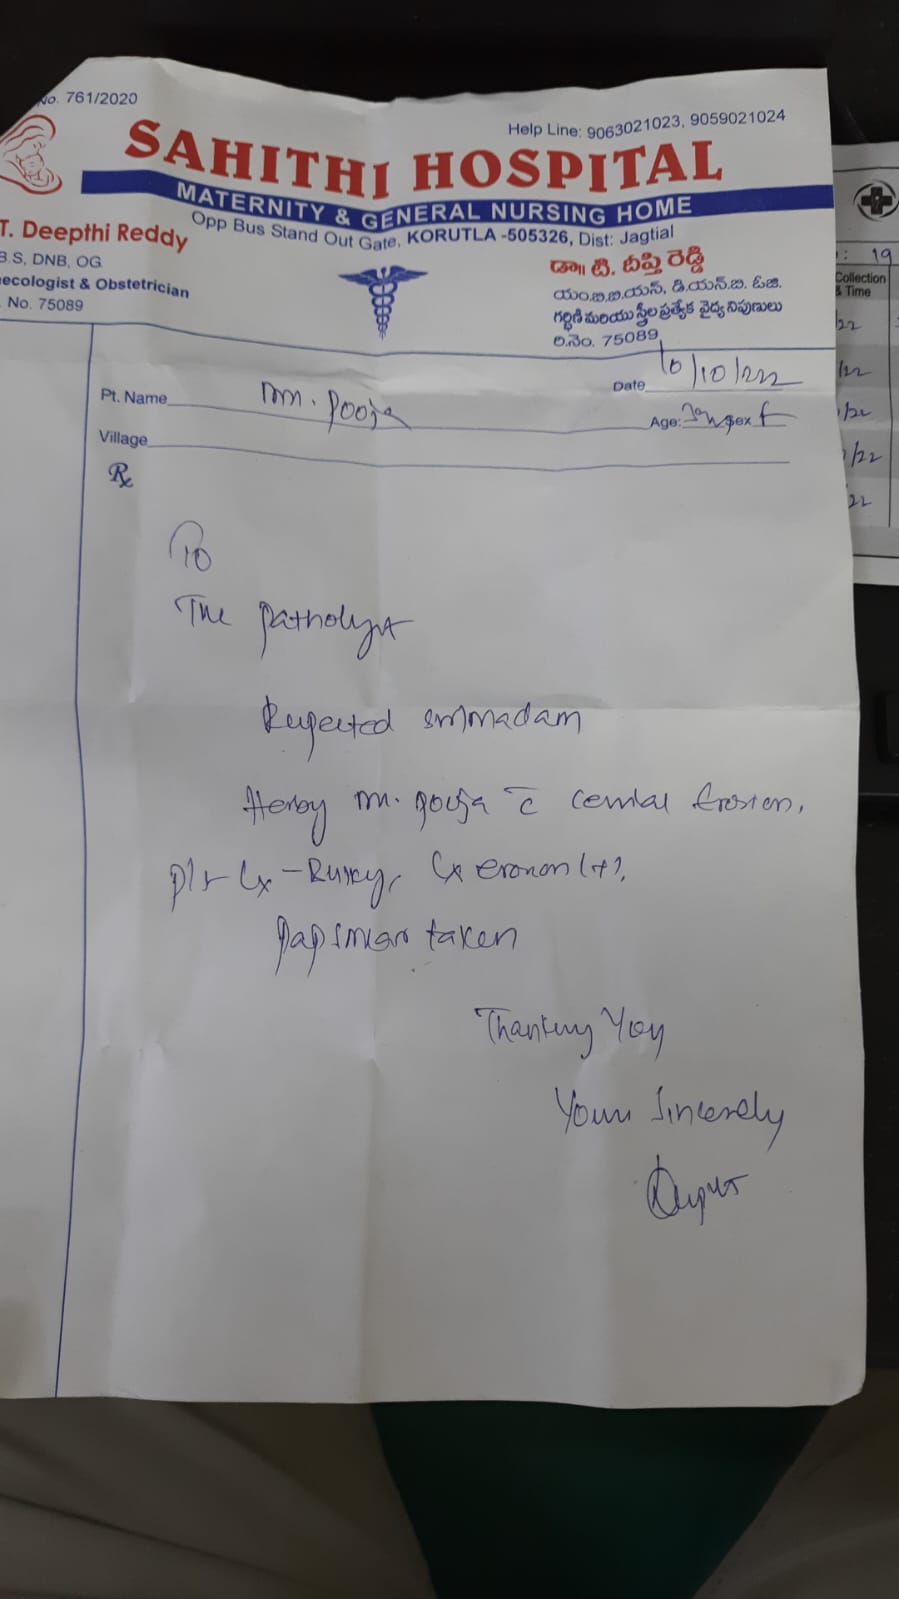 No. 761/2020
Help Line: 9063021023, 9059021024
SAHITHI HOSPITAL
MATERNITY & GENERAL NURSING HOME
Opp Bus Stand Out Gate, KORUTLA -505326, Dist: Jagtial
T. Deepthi Reddy
B.S, DNB, OG
ecologist & Obstetrician
No. 75089
డా॥ టి. దీప్తి రెడ్డి
యం.బి.బి.యస్, డి.యన్.బి. ఓజి.
గర్భిణి మరియు స్త్రీల ప్రత్యేక వైద్య నిపుణులు
రి.నెం. 75089
Pt. Name m. pooja
Date 10/10/22
Age: Sex f
Village
Rx
To
The pathologist
Respected sir/madam
Hereby m. pooja c̄ cervical Erosion,
p/s Cx - Bulky, Cx erosion (+),
pap smear taken
Thanking You
Yours Sincerely
: 19
Collection
& Time
/22
/22
/22
/22
22